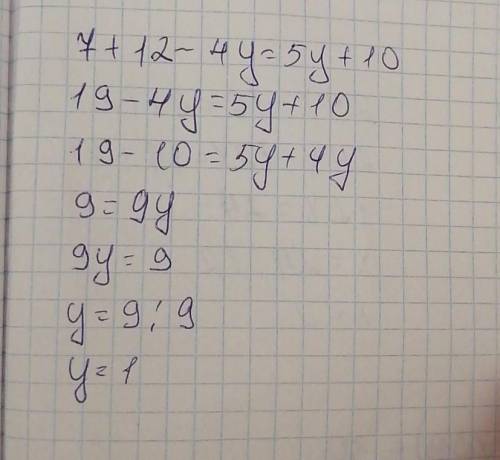 7 + 12 - 4y = 5y + 10
19 - 4y = 5y + 10
19 - 10 = 5y + 4y
9 = 9y
9y = 9
y = 9 : 9
y = 1